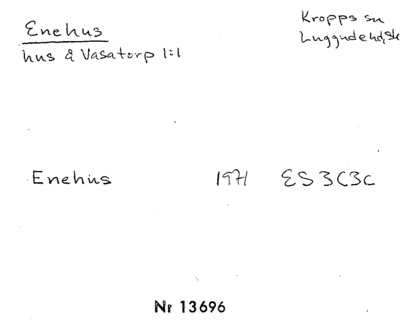 Enehus
hus å Vasatorp 1:1
Kropps sn
Luggude hd, Sk
Enehus 1971 ES 3C3c
Nr 13696